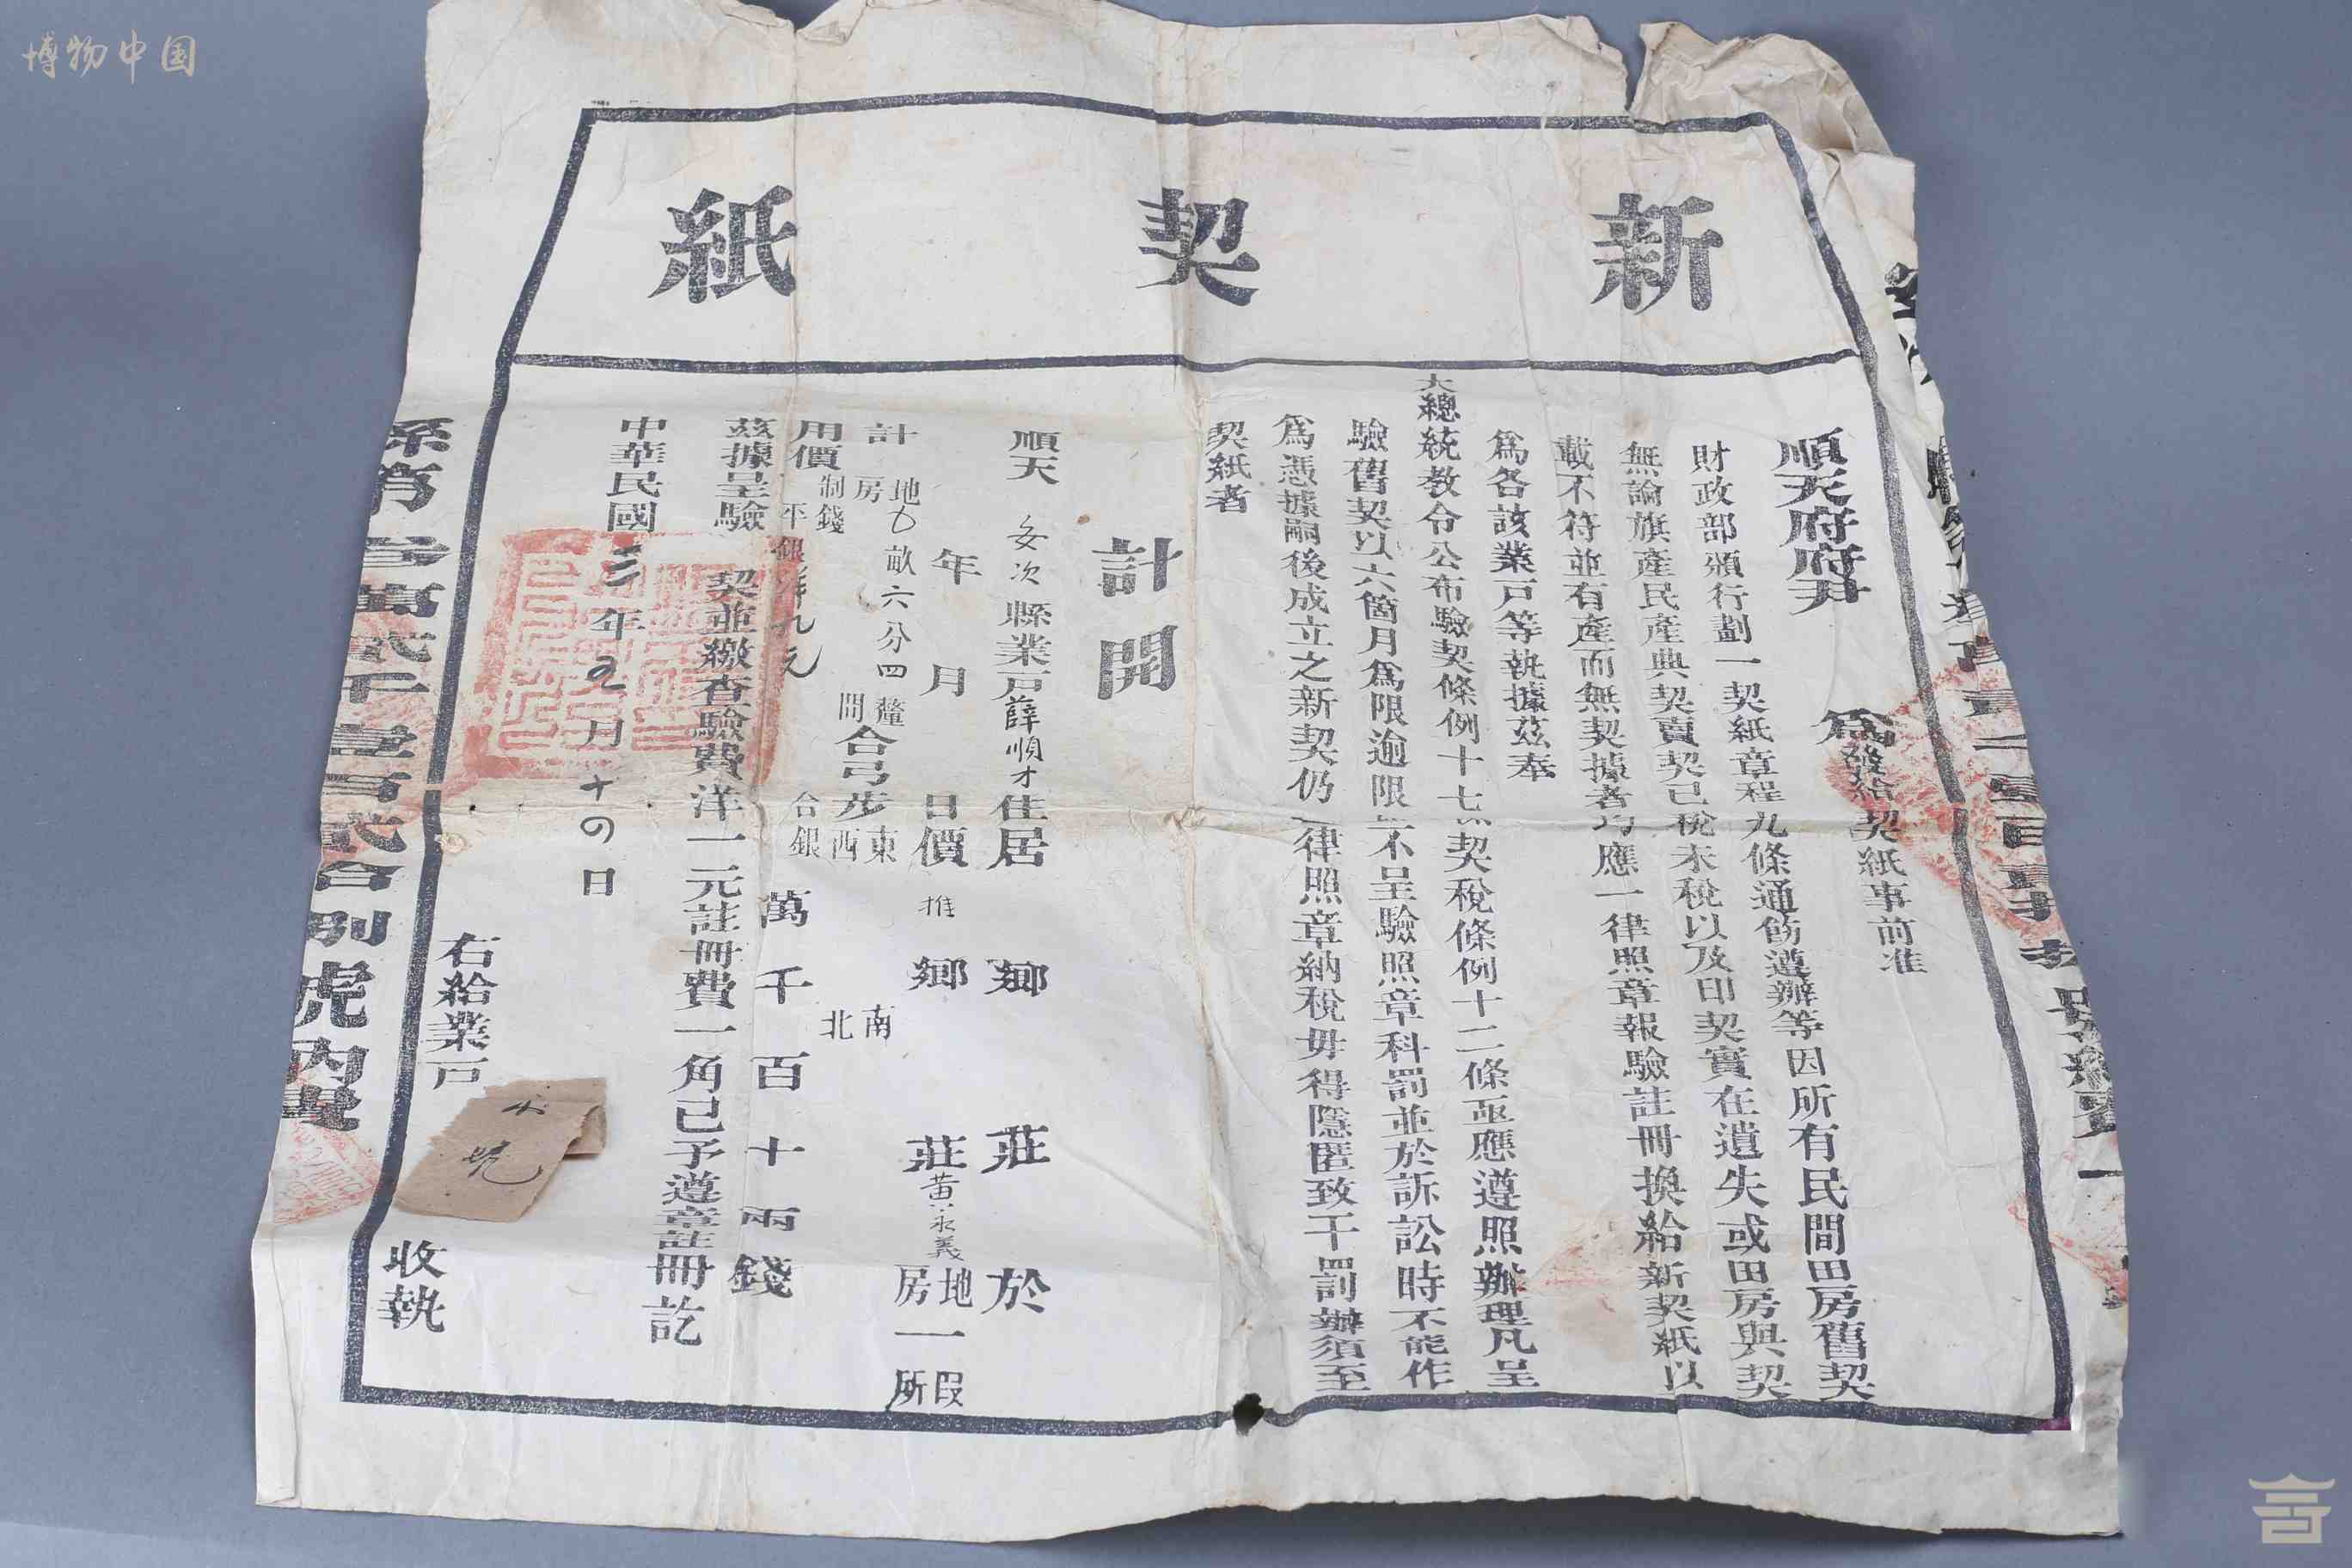 博物中国
新契紙
順天府府尹
為發給契紙事前准
財政部頒行劃一契紙章程九條通飭遵辦等因所有民間田房舊契
無論旗產民產典契賣契已稅未稅以及印契實在遺失或田房與契
載不符並有產而無契據者均應一律照章報驗註冊換給新契紙以
為各該業戶等執據茲奉
大總統教令公布驗契條例十七 契稅條例十二條亟應遵照辦理凡呈
驗舊契以六箇月為限逾限 不呈驗照章科罰並於訴訟時不能作
為憑據嗣後成立之新契仍 律照章納稅毋得隱匿致干罰辦須至
契紙者
計開
順天 縣業戶薛順才住居 鄉 莊 於
年 月 日價 推 鄉 莊黃永義 地房 一 段所
計 地房 畝六分四 釐間 合弓步 東西 南北
用價 制錢 平銀洋九元 合銀 萬 千 百 十 兩 錢
茲據呈驗 契並繳查驗費洋一元註冊費一角已予遵章註冊訖
中華民國三年 月十四日
右給業戶 收執